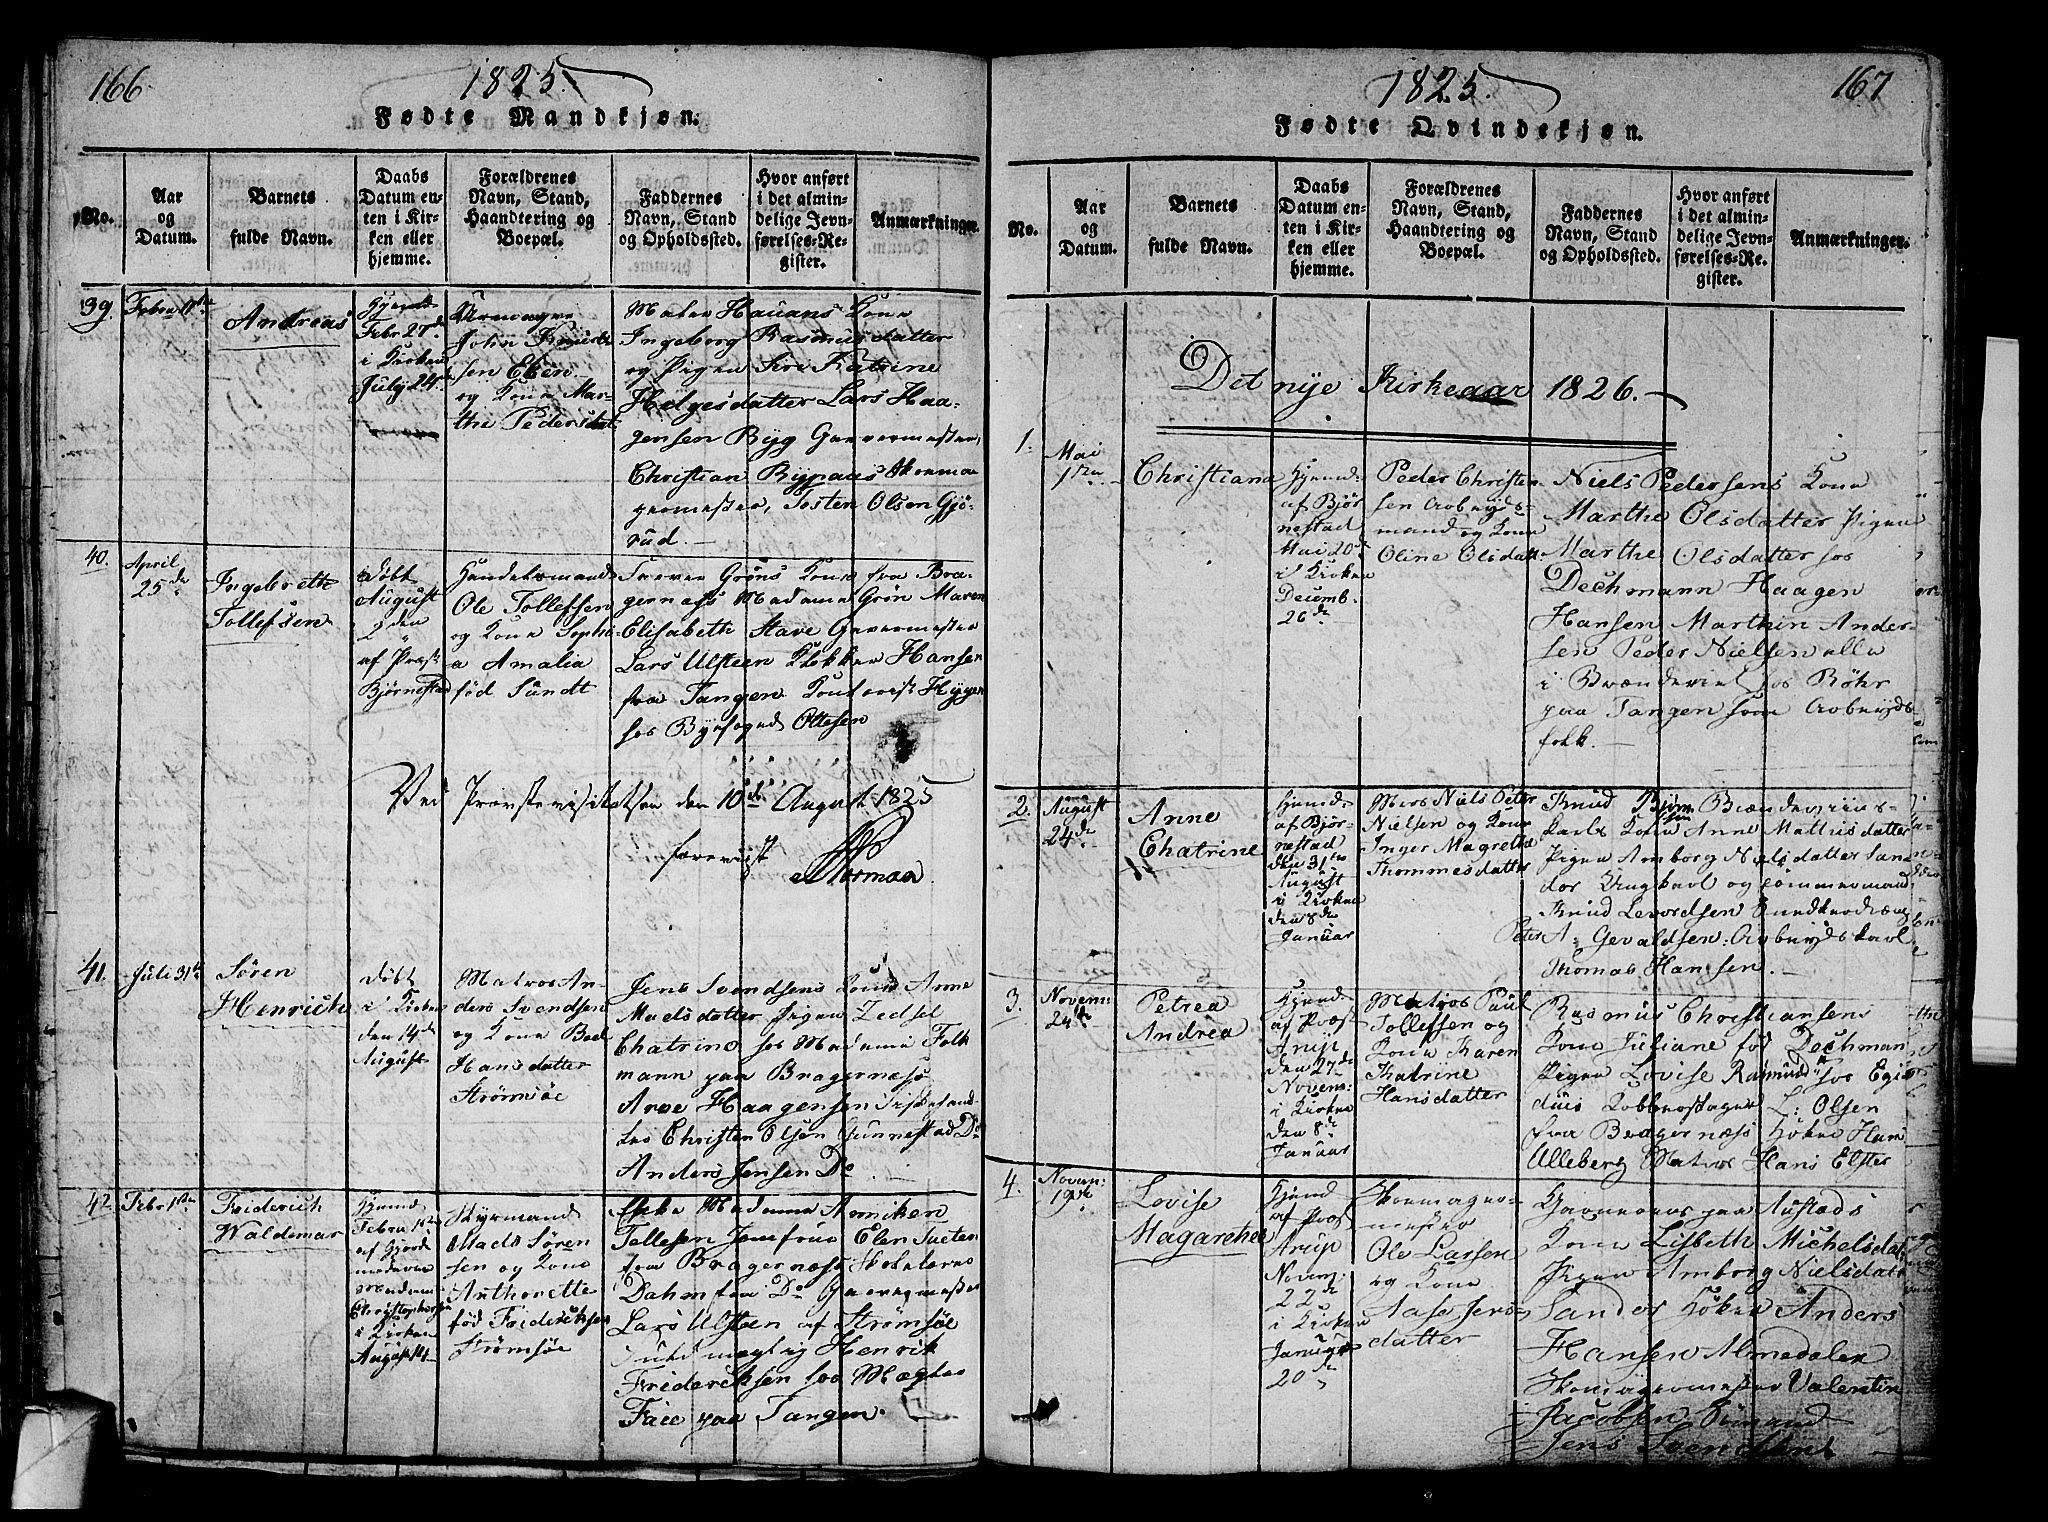 166.
1825.
Fødte Mandkjøn.
No.
Aar
og
Datum.
Barnets
fulde Navn.
Daabs
Datum en-
ten i Kir-
ken eller
hjemme.
Forældrenes
Navn, Stand,
Haandtering og
Boepæl.
Faddernes
Navn, Stand
og Opholdssted.
Hvor anført
i det almin-
delige Jevn-
førelses-Re-
gister.
Anmærkninger.
39
Febru 11te
Andreas
Hjemd
Febr 27de
i Kirken
July 24de
Urmager
John Knud
sen Eken
og Kone Mar-
the Pedersdat
Maler Hauans Kone
Ingeborg Rasmusdatter
og Pigen Siri Katrine
Helgesdatter Lars Haa-
gensen Byg Garvermester,
Christian Rypaas Skoma
germester, Tosten Olsen Gjø-
rud.
40.
April
25de
Ingebrett
Tollefsen
Døbt
August
2den
af Præst
Bjørnestad
Handelsmand
Ole Tollefsen
og Kone Sophi-
a Amalia
fød Sundt
Grøns Kone fra Bra-
gernæss Madame Grøn Maren
Elisabeth Stave Garvermester
Lars Ulsteen Klokker Hansen
fra Tangen Hygen
hos Byefoged Ottesen
Ved Provstevisitatsen den 10de August 1825
foreviist
Norman
41.
Juli 31te
Søren
Henrich
Døbt
i Kirken
den 14de
August
Matros An-
ders Svendsen
og Kone
Hansdatter
Strømsøe
Jens Svendsens Kone Anne
Madsdatter Pigen Zedsel
Chatrine hos Madame Folk
mann paa Bragernæss
Arve Haagensen
Christen Olsen Gunnestad Do
Anders Jensen Do
42
Febr 1ste
Friderich
Waldemar
Hjemd
Febru
af Gjord
moderen
Madame
Christophersen
i Kirken
August 14
Styrmand
Mads Søren
sen og Kone
Anthonette
fød Fridericksen
Strømsøe
Enke Madame Anniken
Tollefsen Jomfrue Elen
fra Bragernæss Skolelærer
Dahm fra Do Garvermester
Lars Ulsteen af Strømsøe
Henrik
Fridericksen hos Mægler
Faee paa Tangen.
167
1825.
Fødte Qvindekjøn.
No.
Aar
og
Datum.
Barnets
fulde Navn.
Daabs
Datum en-
ten i Kir-
ken eller
hjemme.
Forældrenes
Navn, Stand,
Haandtering og
Boepæl.
Faddernes
Navn, Stand
og Opholdssted.
Hvor anført
i det almin-
delige Jevn-
førelses-Re-
gister.
Anmærkninger.
Det nye Kirkeaar 1826.
1.
Mai
Christiane
Hjemd
af Bjør
nestad
Mai 20de
i Kirken
Decemb.
26de
Peder Christen
sen Arbeyds-
mand og Kone
Oline Olsdatt
Niels Pedersens Kone
Marthe Olsdatter Pigen
Marthe Olsdatter hos
Dechmann Haagen
Hansen Marthin Ander-
sen Peder Nielsen alle
i Brænderiet hos Røhr
paa Tangen som Arbeyds
folk.
2.
August
24de
Anne
Chatrine
Hjemd
af Bjør-
nestad
den 31te
August
i Kirken
den 8de
Januar
Niels Peter
Nielsen og Kone
Inger Magrethe
Thommesdatter
Knud Bjørn
sen Brænderiies-
karls Kone Anne Mathisdatter
Pigen Amborg Nielsdatter San-
der og Tømmermand
Knud Levordsen
Peter A: Gevaldsen: Arbeyds karl
Thomas Hansen.
3.
Novem:
24de
Petrea
Andrea
Hjemd
af Præst
Arup
den 27de
Novem:
i Kirken
den 8de
Januar
Matros Paul
Tollefsen og
Kone Karen
Katrine
Hansdatter
Rasmus Christiansens
Kone Juliane fød Dechman
Pigen Lovise hos Egi-
dius Kobberslager L: Olsen
fra Bragernæss Høker Hans
Ulleberg Matros Hans Elster
4.
Novem:
19de
Lovise
Magarethe
Hjemd
af Præst
Arup
Novem:
22de
i Kirken
Januar
20de
Skomager-
mester
Ole Larsen
og Kone
Aase Iers-
datter
paa Austads
Kone Lisbeth Michelsdat
Pigen Amborg Nielsdatr
Sander Høker Anders
Hansen Almedalen
Skomagermester Valentin
Jacobsen
Jens Svendsen